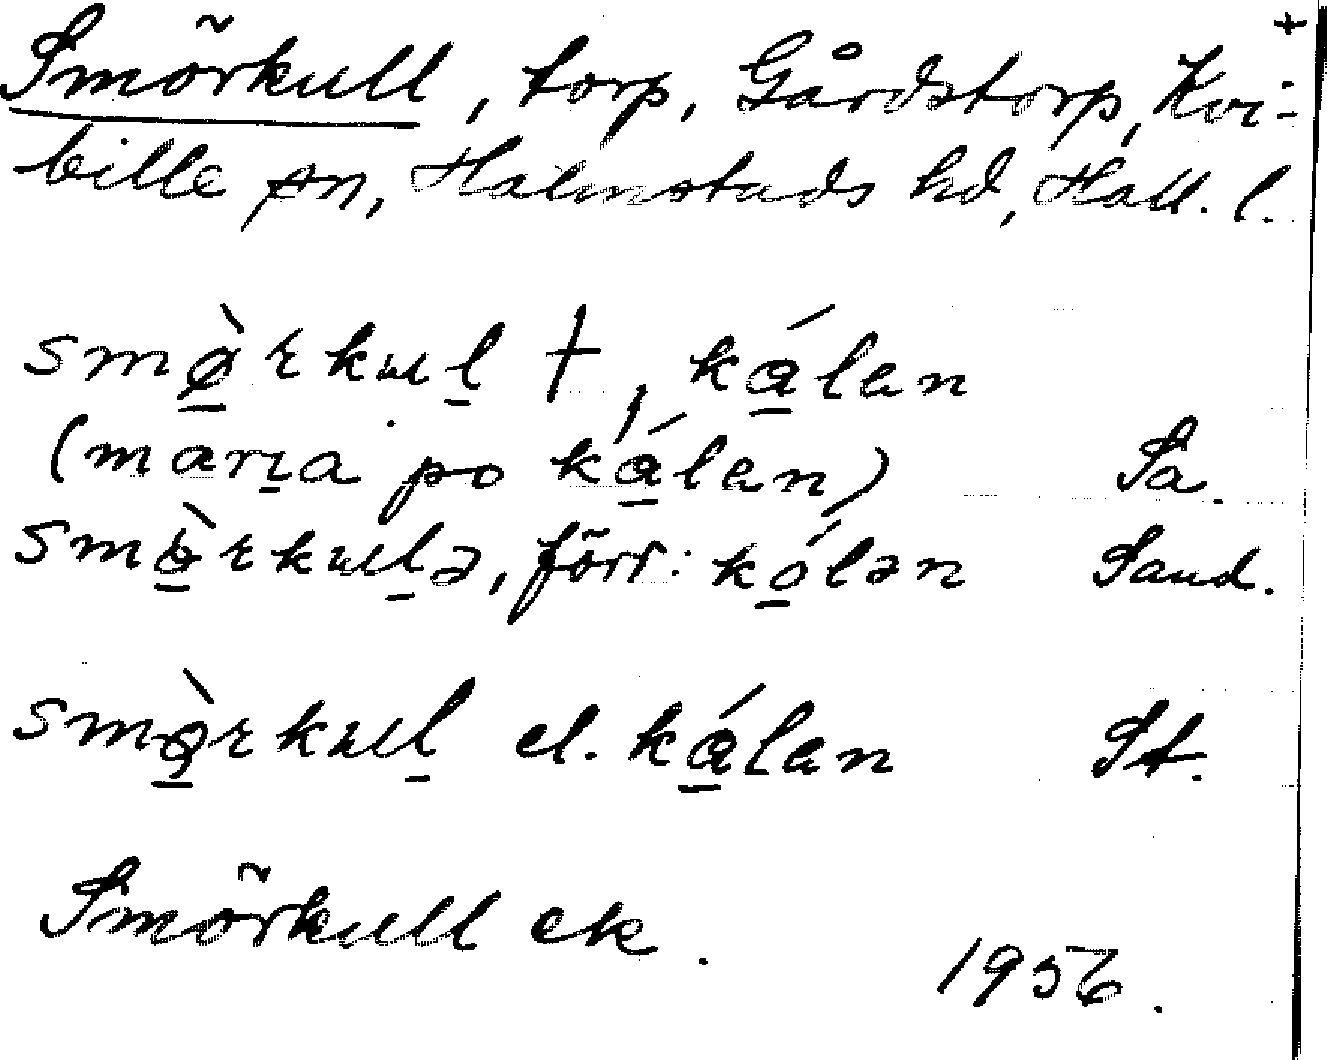 +
Smörkull, torp, Gårdstorp, Kvi-
bille sn, Halmstads hd, Hall. l.
smø̠̀rkul̠ †, ká̠lan
(mari̠a po ká̠lan) Sa.
smø̠̀rkul̠ə, förr: kó̠lən Sand.
smø̠̀rkul̠ el. ká̠lan St.
Smörkull ek.
1956.